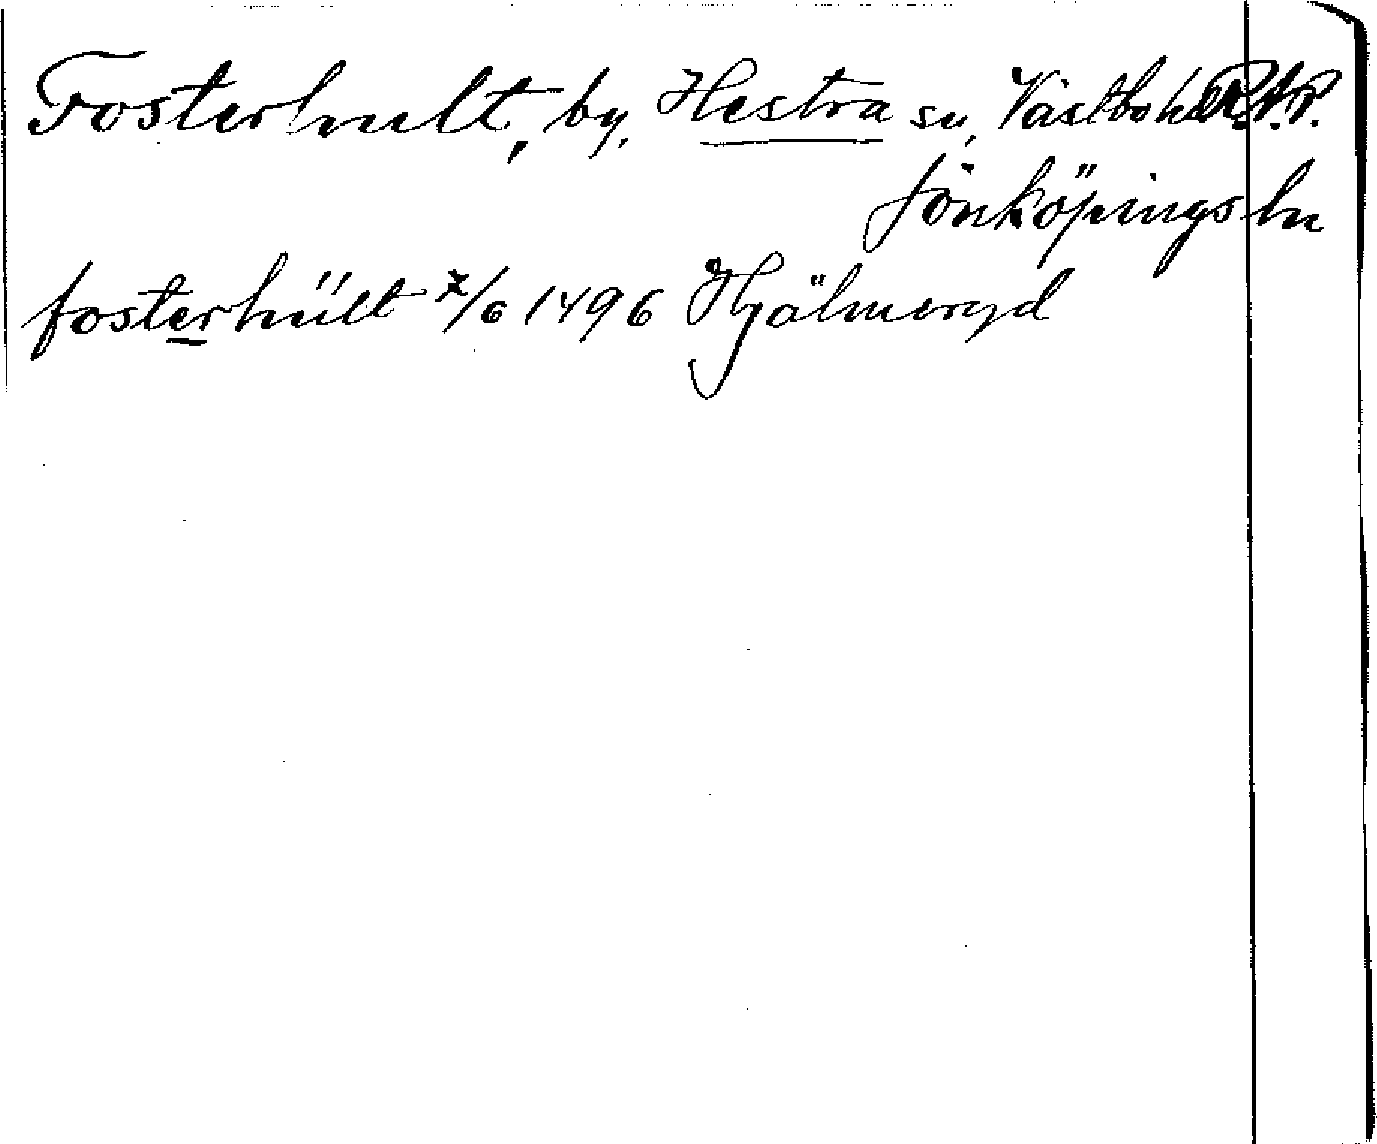 Fosterhult, by, Hestra sn, Västbo hd R.A.P.
Jönköpings ln
fosterhúlt 7/6 1496 Hjälmeryd